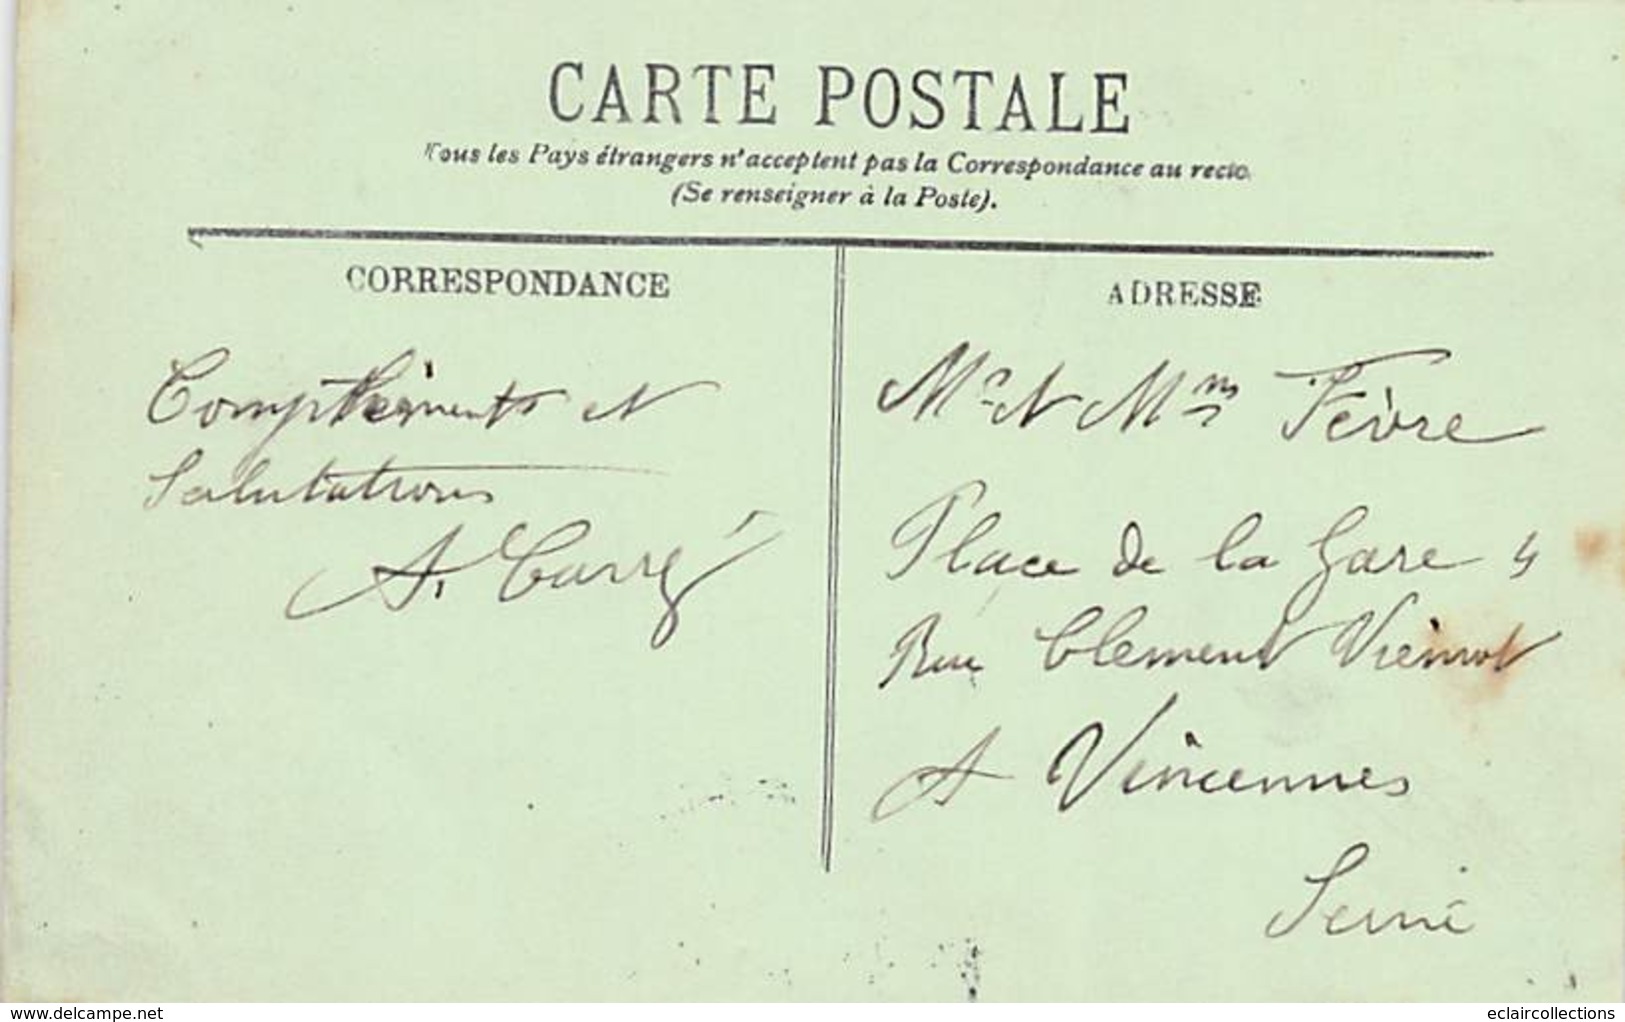 CARTE POSTALE
Tous les Pays étrangers n'acceptent pas la Correspondance au recto.
(Se renseigner à la Poste).
CORRESPONDANCE
ADRESSE
Compliments et
Salutations
A. Carré
Mr et Mme Fèvre
Place de la Gare 4
Rue Clement Vienot
A Vincennes
Seine
www.delcampe.net
eclaircollections